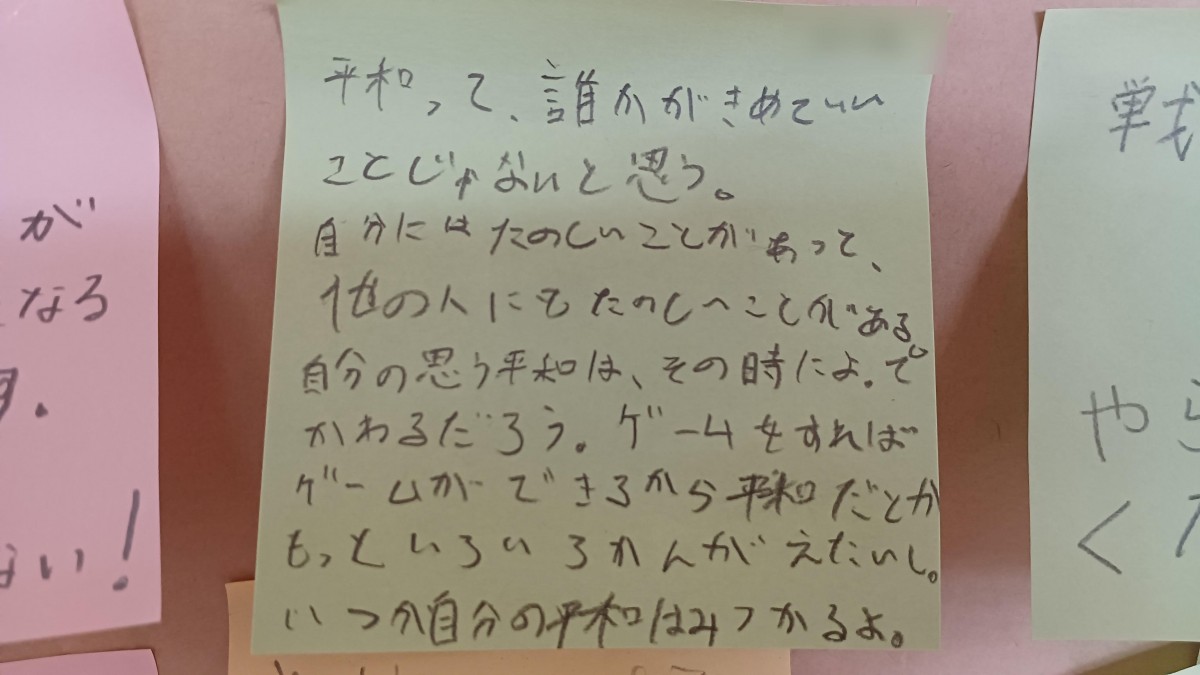 平和って、誰かがきめていい
ことじゃないと思う。
自分にはたのしいことがあって、
他の人にもたのしいことがある。
自分の思う平和は、その時によって
かわるだろう。ゲームをすれば
ゲームができるから平和だとか
もっといろいろかんがえたいし。
いつか自分の平和はみつかるよ。
が
なる
ない!
戦
やら
く